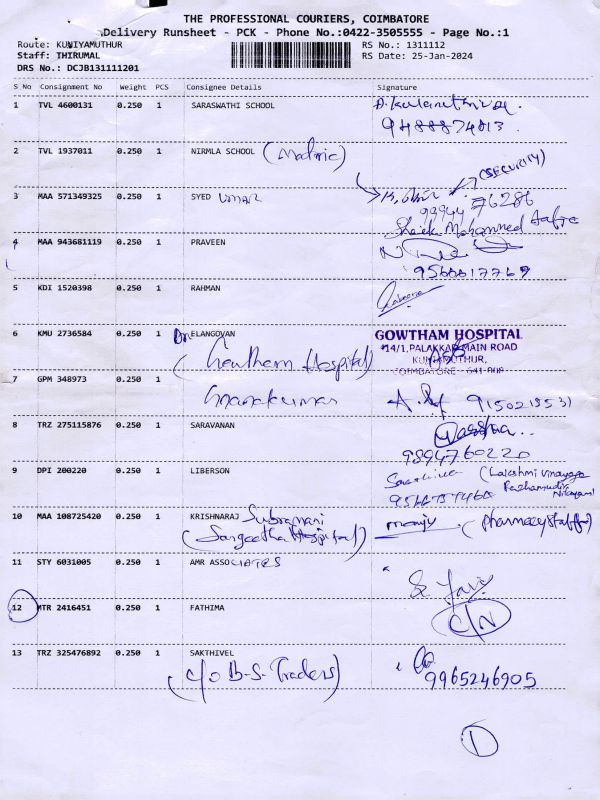 THE PROFESSIONAL COURIERS, COIMBATORE
Delivery Runsheet - PCK - Phone No.:0422-3505555 - Page No.:1
Route: KUNIYAMUTHUR RS No.: 1311112
Staff: THIRUMAL RS Date: 25-Jan-2024
DRS No.: DCJB131111201
S No Consignment No Weight PCS Consignee Details Signature
1 TVL 4600131 0.250 1 SARASWATHI SCHOOL
9488874813.
2 TVL 1937011 0.250 1 NIRMLA SCHOOL (Matric)
(SECURITY)
3 MAA 571349325 0.250 1 SYED UMAR
99944 76286
Sheik Mohammed
4 MAA 943681119 0.250 1 PRAVEEN
9560017769
5 KDI 1520398 0.250 1 RAHMAN
6 KMU 2736584 0.250 1 Dr. ELANGOVAN
(Gowtham Hospital)
GOWTHAM HOSPITAL
14/1, PALAKKAD MAIN ROAD
KUNIAMUTHUR,
COIMBATORE - 641 008
7 GPM 348973 0.250 1
8 TRZ 275115876 0.250 1 SARAVANAN
9894760220
9 DPI 200220 0.250 1 LIBERSON
(Lakshmi Vinayaga
10 MAA 108725420 0.250 1 KRISHNARAJ Subramani
(Sangeetha Hospital)
manju (pharmacy staff)
11 STY 6031005 0.250 1 AMR ASSOCIATES
12 MTR 2416451 0.250 1 FATHIMA
C/N
13 TRZ 325476892 0.250 1 SAKTHIVEL
(C/O B-S-Traders)
9965246905
1